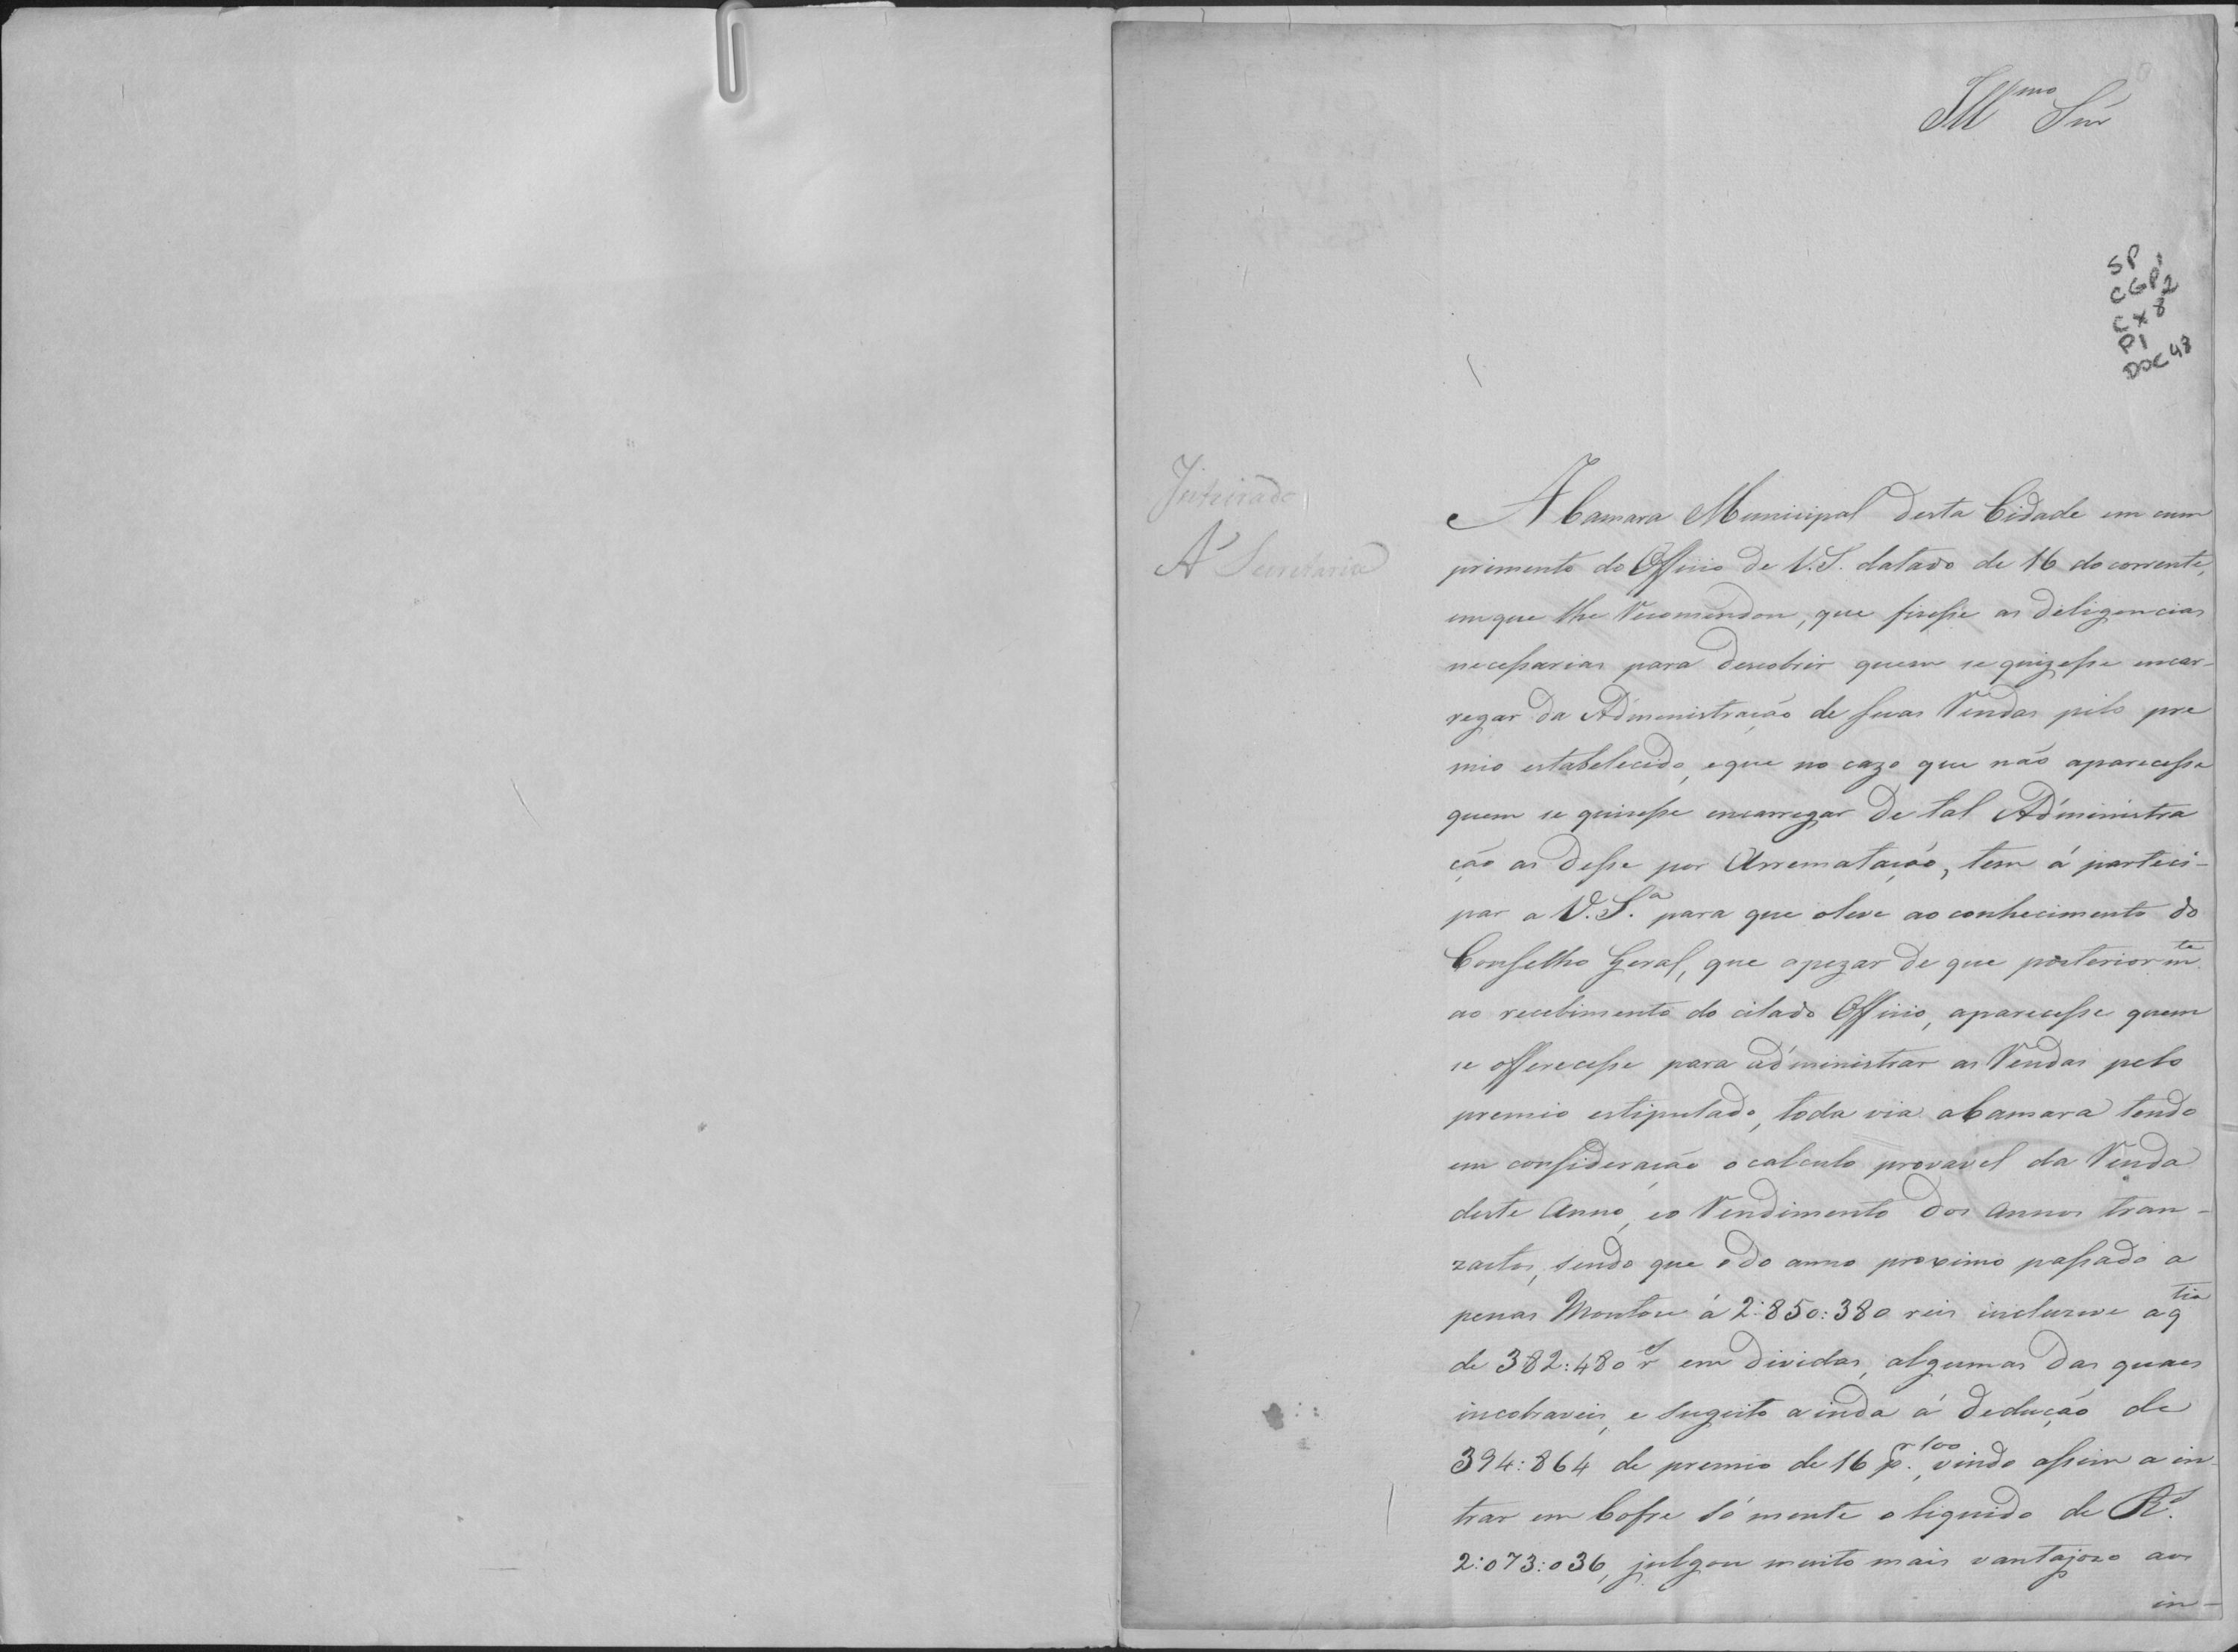 Ill.mo Snr
SP
CGP1
CX 82
P1
DOC 48
Inteirada
A' Secretaria
A Camara Municipal desta Cidade em cum
primento do Officio de V.S. datado de 16 do corrente,
em que lhe recomendou, que fizesse as deligencias
necessarias para descobrir quem se quizesse encar-
regar da Administração de suas Rendas pelo pre
mio estabelecido, e que no cazo que não aparecesse
quem se quisesse encarregar de tal Administra
ção as desse por Arrematação, tem á parteci-
par a V.S.a para que oleve ao conhecimento do
Conselho Geral, que apezar de que posteriormte
ao recebimento do citado Officio, aparecesse quem
se offerecesse para administrar as Rendas pelo
premio estipulado, toda via a Camara tendo
em consideração o calculo provavel da Renda
deste Anno, eo Rendimento dos Annos tran-
zactos, sendo que o do anno proximo passado a
penas Montou á 2:850:380 reis incluzive a qtia
de 382:480 rs em dividas, algumas das quaes
incobraveis, e sugeito ainda á dedução de
394:864 de premio de 16 pr 100, vindo assim a in-
trar em Cofre só mente o liquido de Rs.
2:073:036, julgou muito mais vantajozo aos
in-